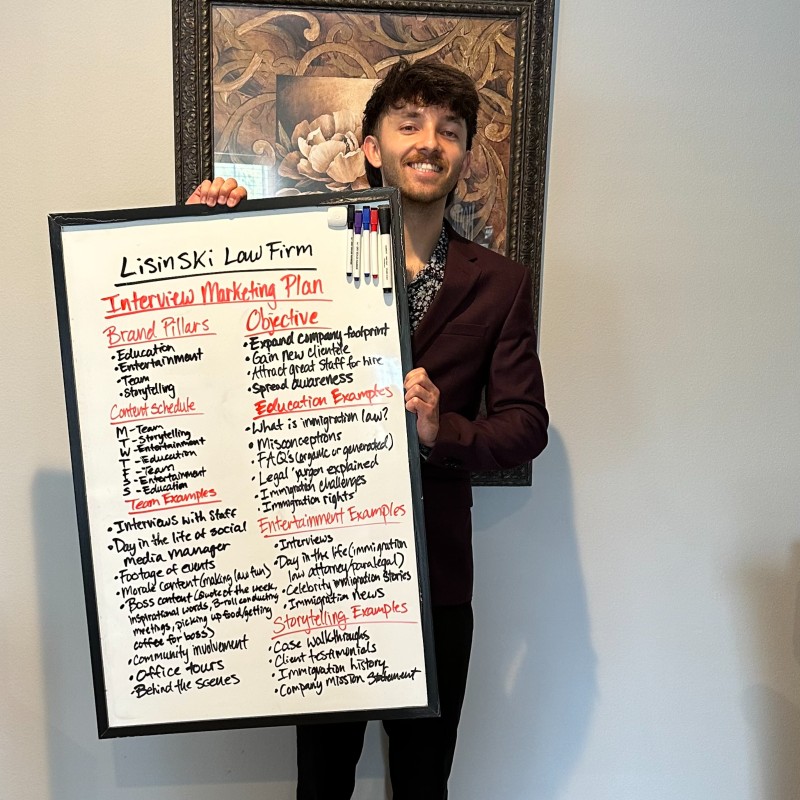 Lisinski Law Firm
Interview Marketing Plan
Brand Pillars
• Education
• Entertainment
• Team
• Storytelling
Content Schedule
M - Team
T - Storytelling
W - Entertainment
T - Education
F - Team
S - Entertainment
S - Education
Team Examples
• Interviews with Staff
• Day in the life of social
media manager
• Footage of events
• Morale content (making law fun)
• Boss content (Quote of the week,
inspirational words, B-roll conducting
meetings, picking up food/getting
coffee for boss)
• Community involvement
• Office tours
• Behind the scenes
Objective
• Expand company footprint
• Gain new clientele
• Attract great Staff for hire
• Spread awareness
Education Examples
• What is immigration law?
• Misconceptions
• FAQ's (organic or generated)
• Legal jargon explained
• Immigration challenges
• Immigration rights
Entertainment Examples
• Interviews
• Day in the life (immigration
law attorney/paralegal)
• Celebrity immigration stories
• Immigration News
Storytelling Examples
• Case walkthroughs
• Client testimonials
• Immigration history
• Company mission Statement